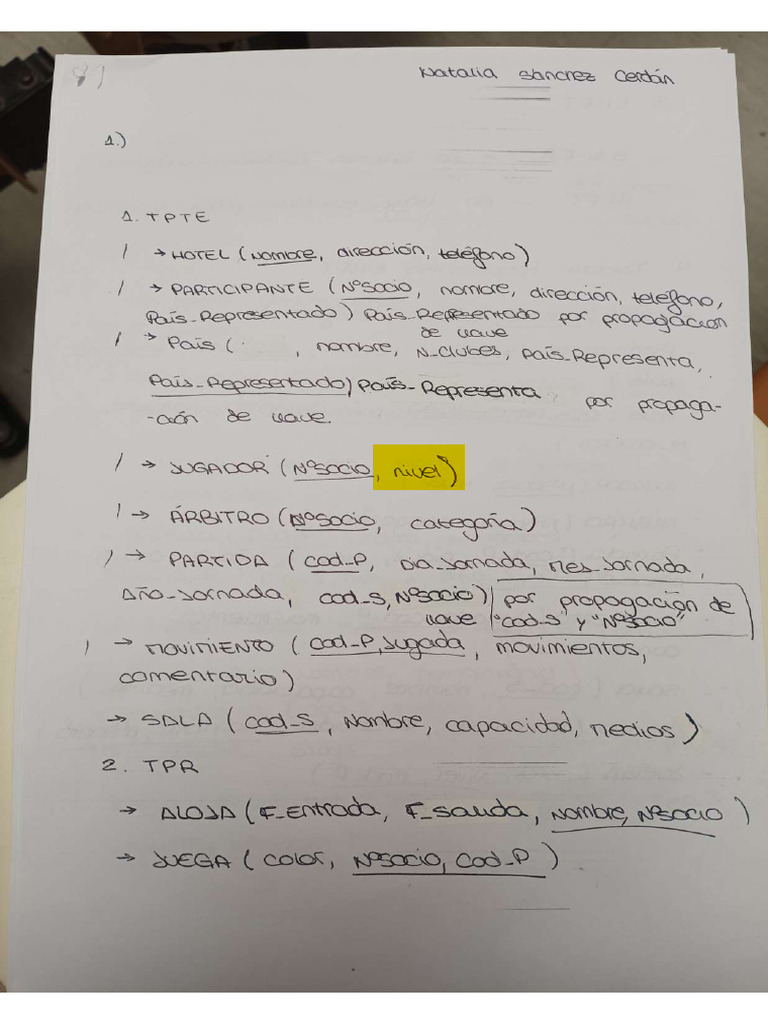 Natalia Sánchez Cerdán
1.)
1. TPTE
→ HOTEL (Nombre, dirección, teléfono)
→ PARTICIPANTE (NºSocio, nombre, dirección, teléfono,
País_Representado) País_Representado por propagación
de llave
→ País ( , nombre, N_clubes, País_Representa,
País_Representado) País_Representa por propaga-
-ación de llave.
→ JUGADOR (NºSocio, nivel)
→ ÁRBITRO (NºSocio, categoría)
→ PARTIDA (cod_P, Dia_Jornada, Mes_Jornada,
Año_Jornada, cod_S, NºSocio) por propagación de
llave "cod_S" y "NºSocio"
→ MOVIMIENTO (cod_P, Jugada, movimientos,
comentario)
→ SALA (cod_S, Nombre, capacidad, Medios)
2. TPR
→ ALOJA (F_Entrada, F_Salida, Nombre, NºSocio)
→ JUEGA (color, NºSocio, Cod_P)